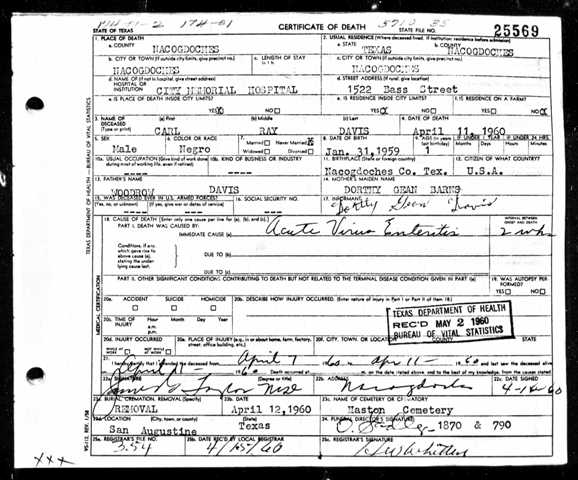 STATE OF TEXAS
CERTIFICATE OF DEATH
STATE FILE NO. 25569
1. PLACE OF DEATH
a. COUNTY
NACOGDOCHES
2. USUAL RESIDENCE (Where deceased lived. If institution: residence before admission)
a. STATE TEXAS b. COUNTY NACOGDOCHES
b. CITY OR TOWN (If outside city limits, give precinct no.)
NACOGDOCHES
c. LENGTH OF STAY
c. CITY OR TOWN (If outside city limits, give precinct no.)
NACOGDOCHES
d. NAME OF (If not in hospital, give street address)
HOSPITAL OR
INSTITUTION CITY MEMORIAL HOSPITAL
d. STREET ADDRESS (If rural, give location)
1522 Bass Street
e. IS PLACE OF DEATH INSIDE CITY LIMITS?
YES X NO
e. IS RESIDENCE INSIDE CITY LIMITS?
YES X NO
f. IS RESIDENCE ON A FARM?
YES NO X
3. NAME OF DECEASED (Type or print)
(a) First CARL
(b) Middle RAY
(c) Last DAVIS
4. DATE OF DEATH
April 11, 1960
5. SEX
Male
6. COLOR OR RACE
Negro
7. Married Never Married X
Widowed Divorced
8. DATE OF BIRTH
Jan. 31, 1959
9. AGE (In years last birthday)
1
IF UNDER 1 YEAR
Months Days
IF UNDER 24 HRS.
Hours Min.
10a. USUAL OCCUPATION (Give kind of work done during most of working life, even if retired)
10b. KIND OF BUSINESS OR INDUSTRY
11. BIRTHPLACE (State or foreign country)
Nacogdoches Co. Tex.
12. CITIZEN OF WHAT COUNTRY?
U.S.A.
13. FATHER'S NAME
WOODROW DAVIS
14. MOTHER'S MAIDEN NAME
DORTHY GEAN BARNS
15. WAS DECEASED EVER IN U.S. ARMED FORCES?
(Yes, no, or unknown) (If yes, give war or dates of service)
16. SOCIAL SECURITY NO.
17. INFORMANT
Gean Davis
18. CAUSE OF DEATH (Enter only one cause per line for (a), (b), and (c).)
PART I. DEATH WAS CAUSED BY:
IMMEDIATE CAUSE (a) Acute Virus Enteritis
INTERVAL BETWEEN ONSET AND DEATH
2 wks
Conditions, if any, which gave rise to above cause (a), stating the underlying cause last.
DUE TO (b)
DUE TO (c)
PART II. OTHER SIGNIFICANT CONDITIONS CONTRIBUTING TO DEATH BUT NOT RELATED TO THE TERMINAL DISEASE CONDITION GIVEN IN PART I(a)
19. WAS AUTOPSY PERFORMED?
YES NO
20a. ACCIDENT SUICIDE HOMICIDE
20b. DESCRIBE HOW INJURY OCCURRED. (Enter nature of injury in Part I or Part II of item 18.)
20c. TIME OF INJURY
Hour Month Day Year
a.m.
p.m.
20d. INJURY OCCURRED
WHILE AT WORK NOT WHILE AT WORK
20e. PLACE OF INJURY (e.g., in or about home, farm, factory, street, office building, etc.)
20f. CITY, TOWN, OR LOCATION
TEXAS DEPARTMENT OF HEALTH
REC'D MAY 2 1960
BUREAU OF VITAL STATISTICS
21. I hereby certify that I attended the deceased from April 7 Apr 11 1960 and last saw the deceased alive
April 11 1960. Death occurred at m. on the date stated above, and to the best of my knowledge, from the causes stated.
22a. SIGNATURE (Degree or title)
James G. Taylor
22b. ADDRESS
Nacogdoches
22c. DATE SIGNED
23a. BURIAL, CREMATION, REMOVAL (Specify)
REMOVAL
23b. DATE
April 12, 1960
23c. NAME OF CEMETERY OR CREMATORY
Maston Cemetery
23d. LOCATION (City, town, or county) (State)
San Augustine Texas
24. FUNERAL DIRECTOR'S SIGNATURE
1870 & 790
25a. REGISTRAR'S FILE NO.
354
25b. DATE REC'D BY LOCAL REGISTRAR
4/15/60
25c. REGISTRAR'S SIGNATURE
TEXAS DEPARTMENT OF HEALTH - BUREAU OF VITAL STATISTICS
MEDICAL CERTIFICATION
VS-112, REV. 1/58
XXX